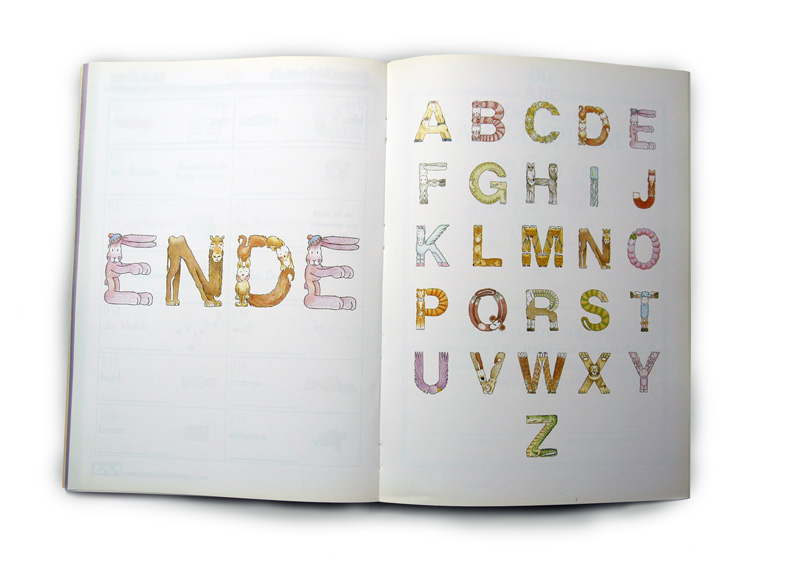 ENDE
ABCDE
FGHIJ
KLMNO
PQRST
UVWXY
Z